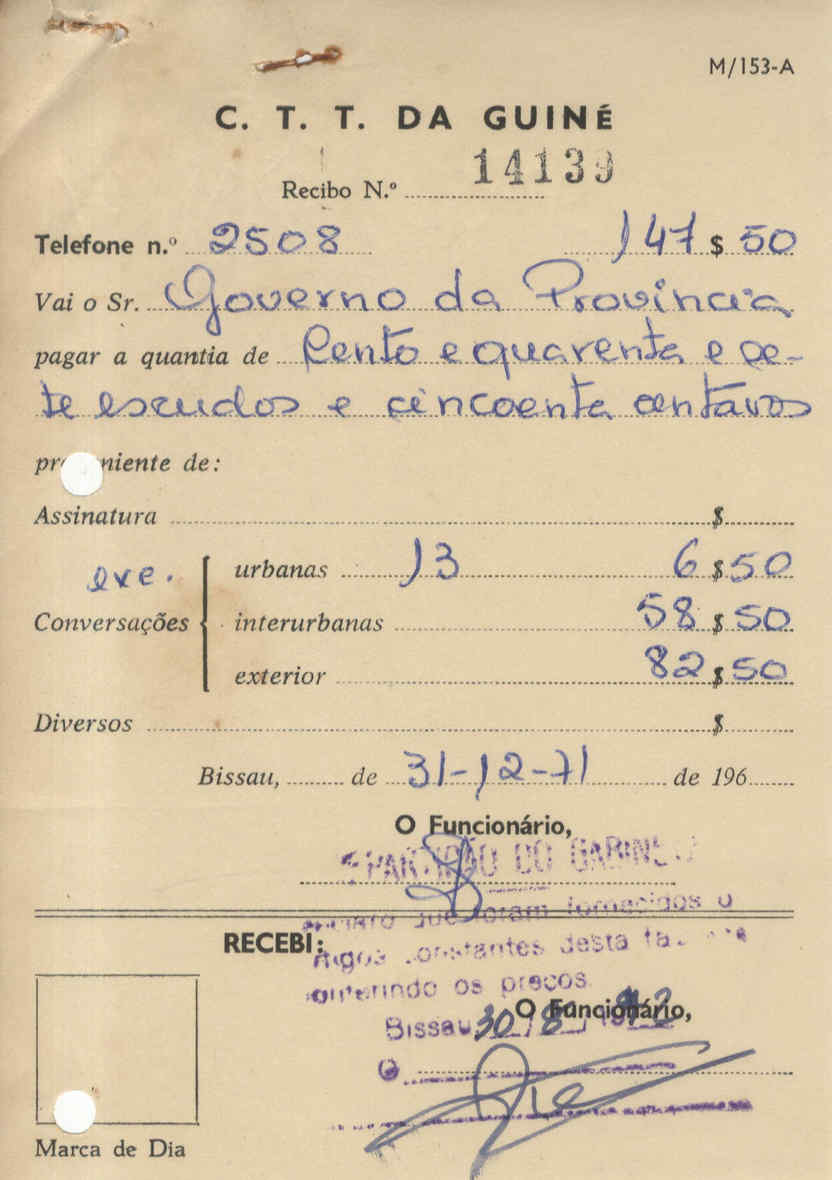 M/153-A
C. T. T. DA GUINÉ
Recibo N.º 14139
Telefone n.º 2508 147 $ 50
Vai o Sr. Governo da Província
pagar a quantia de Cento e quarenta e se-
te escudos e cincoenta centavos
pr niente de:
Assinatura $
exe. urbanas 13 6 $ 50
Conversações interurbanas 58 $ 50
exterior 82 $ 50
Diversos $
Bissau, de 31-12-71 de 196
O Funcionário,
PARTIÇÃO DO GABINE
que foram fornecidos o
RECEBI:
constantes desta
os preços
O Funcionário,
Bissau 30/8/1972
O
Marca de Dia